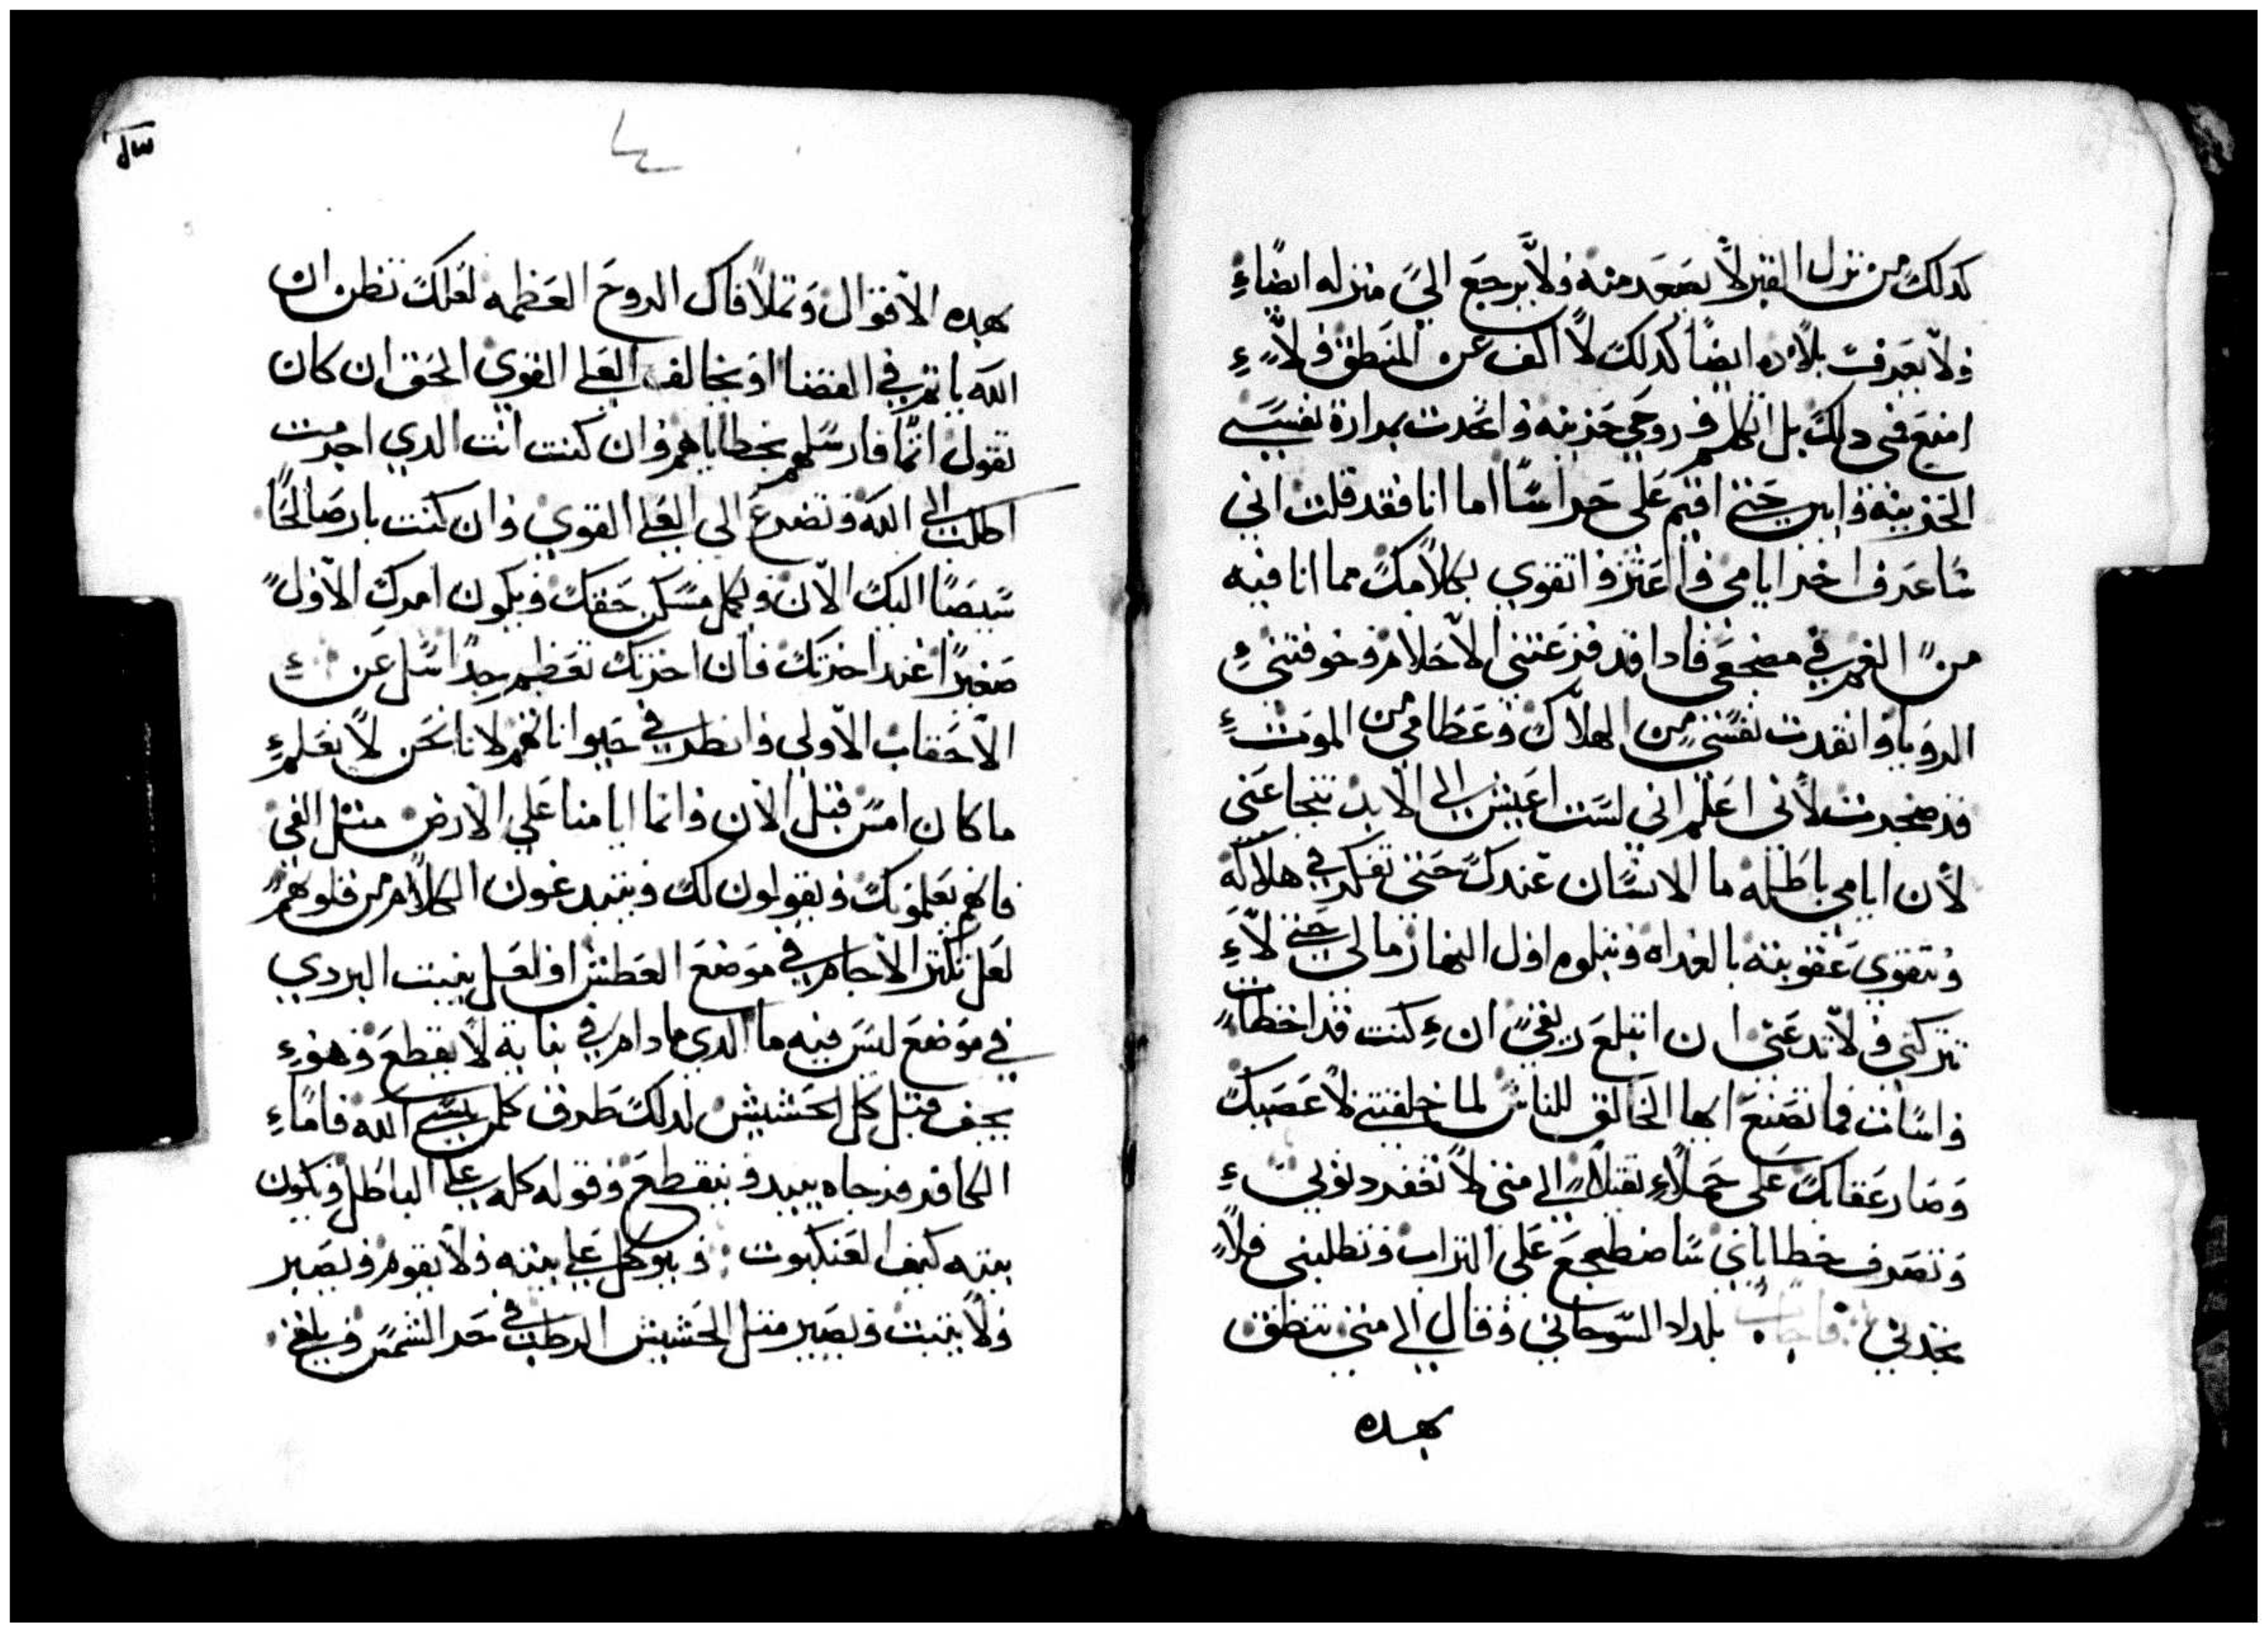 كدلك من نزل القبر لا يصعد منه ولا يرجع الي منزله ايضاء
ولا يعرفت بلاده ايضا كدلك لا اكف عن المنطق ولا
امنع فمي دلك بل اتكلم وروحي حزينه واتحدت بمرارة نفسي
الحزينه واين حتي اقيم علي حراسا اما انا فقد قلت اني
ساعرف اخر ايامي واعتز واتقوي بكلامك مما انا فيه
من الغم في مضجعي فادا قد فزعتني الاحلام وخوفتني
الرويا وانقدت نفسي من الهلاك وعظامي من الموت
قد ضجرت لاني اعلم اني لست اعيش الي الابد تنجا عني
لان ايامي باطله ما الانسان عندك حتي تفكر في هلاكه
وتتقوي عقوبته بالغداه وتبلوه اول النهار مالي حتي لا
تتركني ولا تدعني ان ابتلع ريقي ان كنت قد اخطات
واسات فما تصنع ايها الخالق للناس لما خلقتني لا عصيك
وصار عقابك علي حملا تقيلا الي متي لا تغفر دنوبي
وتصرف خطاياي ساضطجع علي التراب وتطلبني فلا
تجدني فاجاب بلداد السوحاني وقال الي متي تنطق
بهده
سل
بهده الاقوال وتملا فاك الروح العظمه لعلك تظن ان
الله ياتم في القضا او يخالف العلي القوي الحق ان كان
تقول اثما فارسلهم بخطاياهم وان كنت انت الدي اجرمت
اطلب الي الله وتضرع الي العلي القوي وان كنت بار صالحا
سيصا اليك الان ويكمل مسكن حقك ويكون امرك الاول
صغيرا عند اخرتك فان اخرتك تعظم جدا سل عن
الاحقاب الاولي وانظر في حيوانا لانا نحن لا نعلم
ما كان امس قبل الان وانما ايامنا علي الارض مثل الفي
فانهم يعلمونك ويقولون لك ويبتدعون الكلام من قلوبهم
لعل تكثر الاجام في موضع العطش او لعل ينبت البردي
في موضع ليس فيه ما الدي ما دام في نباته لا يقطع وهو
يجف قبل كل الحشيش لدلك طرق كلمن ينسي الله فاما
الكافر فرجاه يبيد وينقطع وقوله كله علي الباطل ويكون
بيته كبيت العنكبوت ويوكل علي بيته ولا يقوم ويصير
ولا يثبت ويصير متل الحشيش الرطب في حر الشمس ويلقي